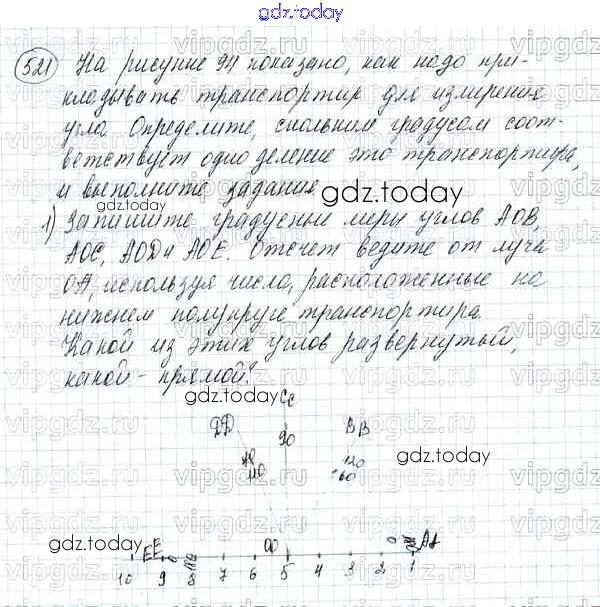 gdz.today
521 На рисунке 94 показано, как надо при-
кладывать транспортир для измерения
угла. Определите, скольким градусам соот-
ветствует одно деление это транспортира,
и выполните задания.
gdz.today
1) Запишите градусные меры углов AOB,
AOC, AOD и AOE. Отсчет ведите от луча
OA, используя числа, расположенные на
нижнем полукруге транспортира.
Какой из этих углов развернутый,
какой - прямой?
gdz.today
C
D B
90
gdz.today
120
60
gdz.today
E O A
10 9 8 7 6 5 4 3 2 1
gdz.today